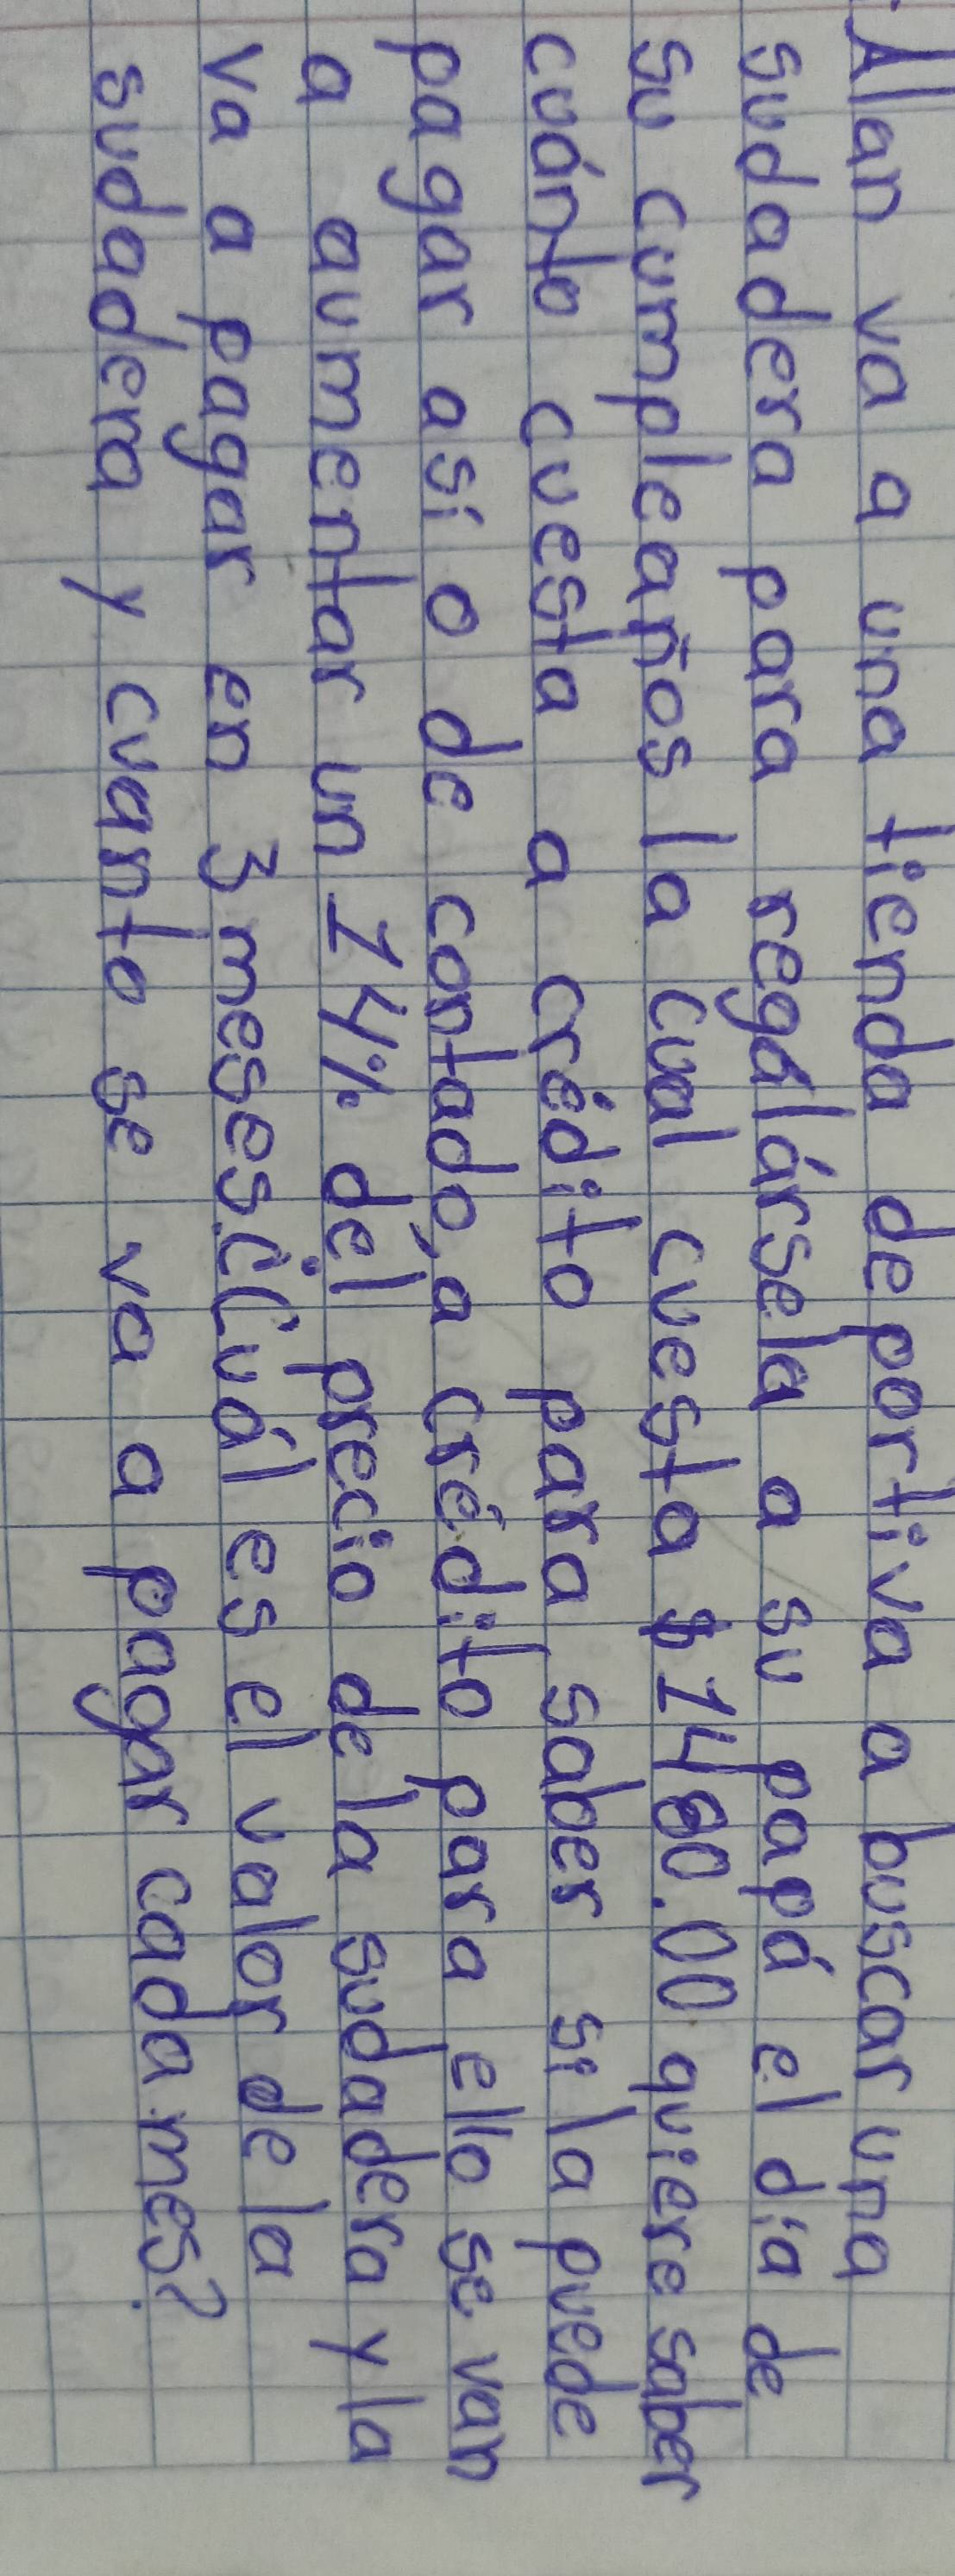 Alan va a una tienda deportiva a buscar una
sudadera para regalársela a su papá el día de
su cumpleaños la cual cuesta $1480.00 quiere saber
cuánto cuesta a crédito para saber si la puede
pagar así o de contado, a crédito para ello se van
a aumentar un 14% del precio de la sudadera y la
va a pagar en 3 meses.¿Cuál es el valor de la
sudadera y cuanto se va a pagar cada mes?